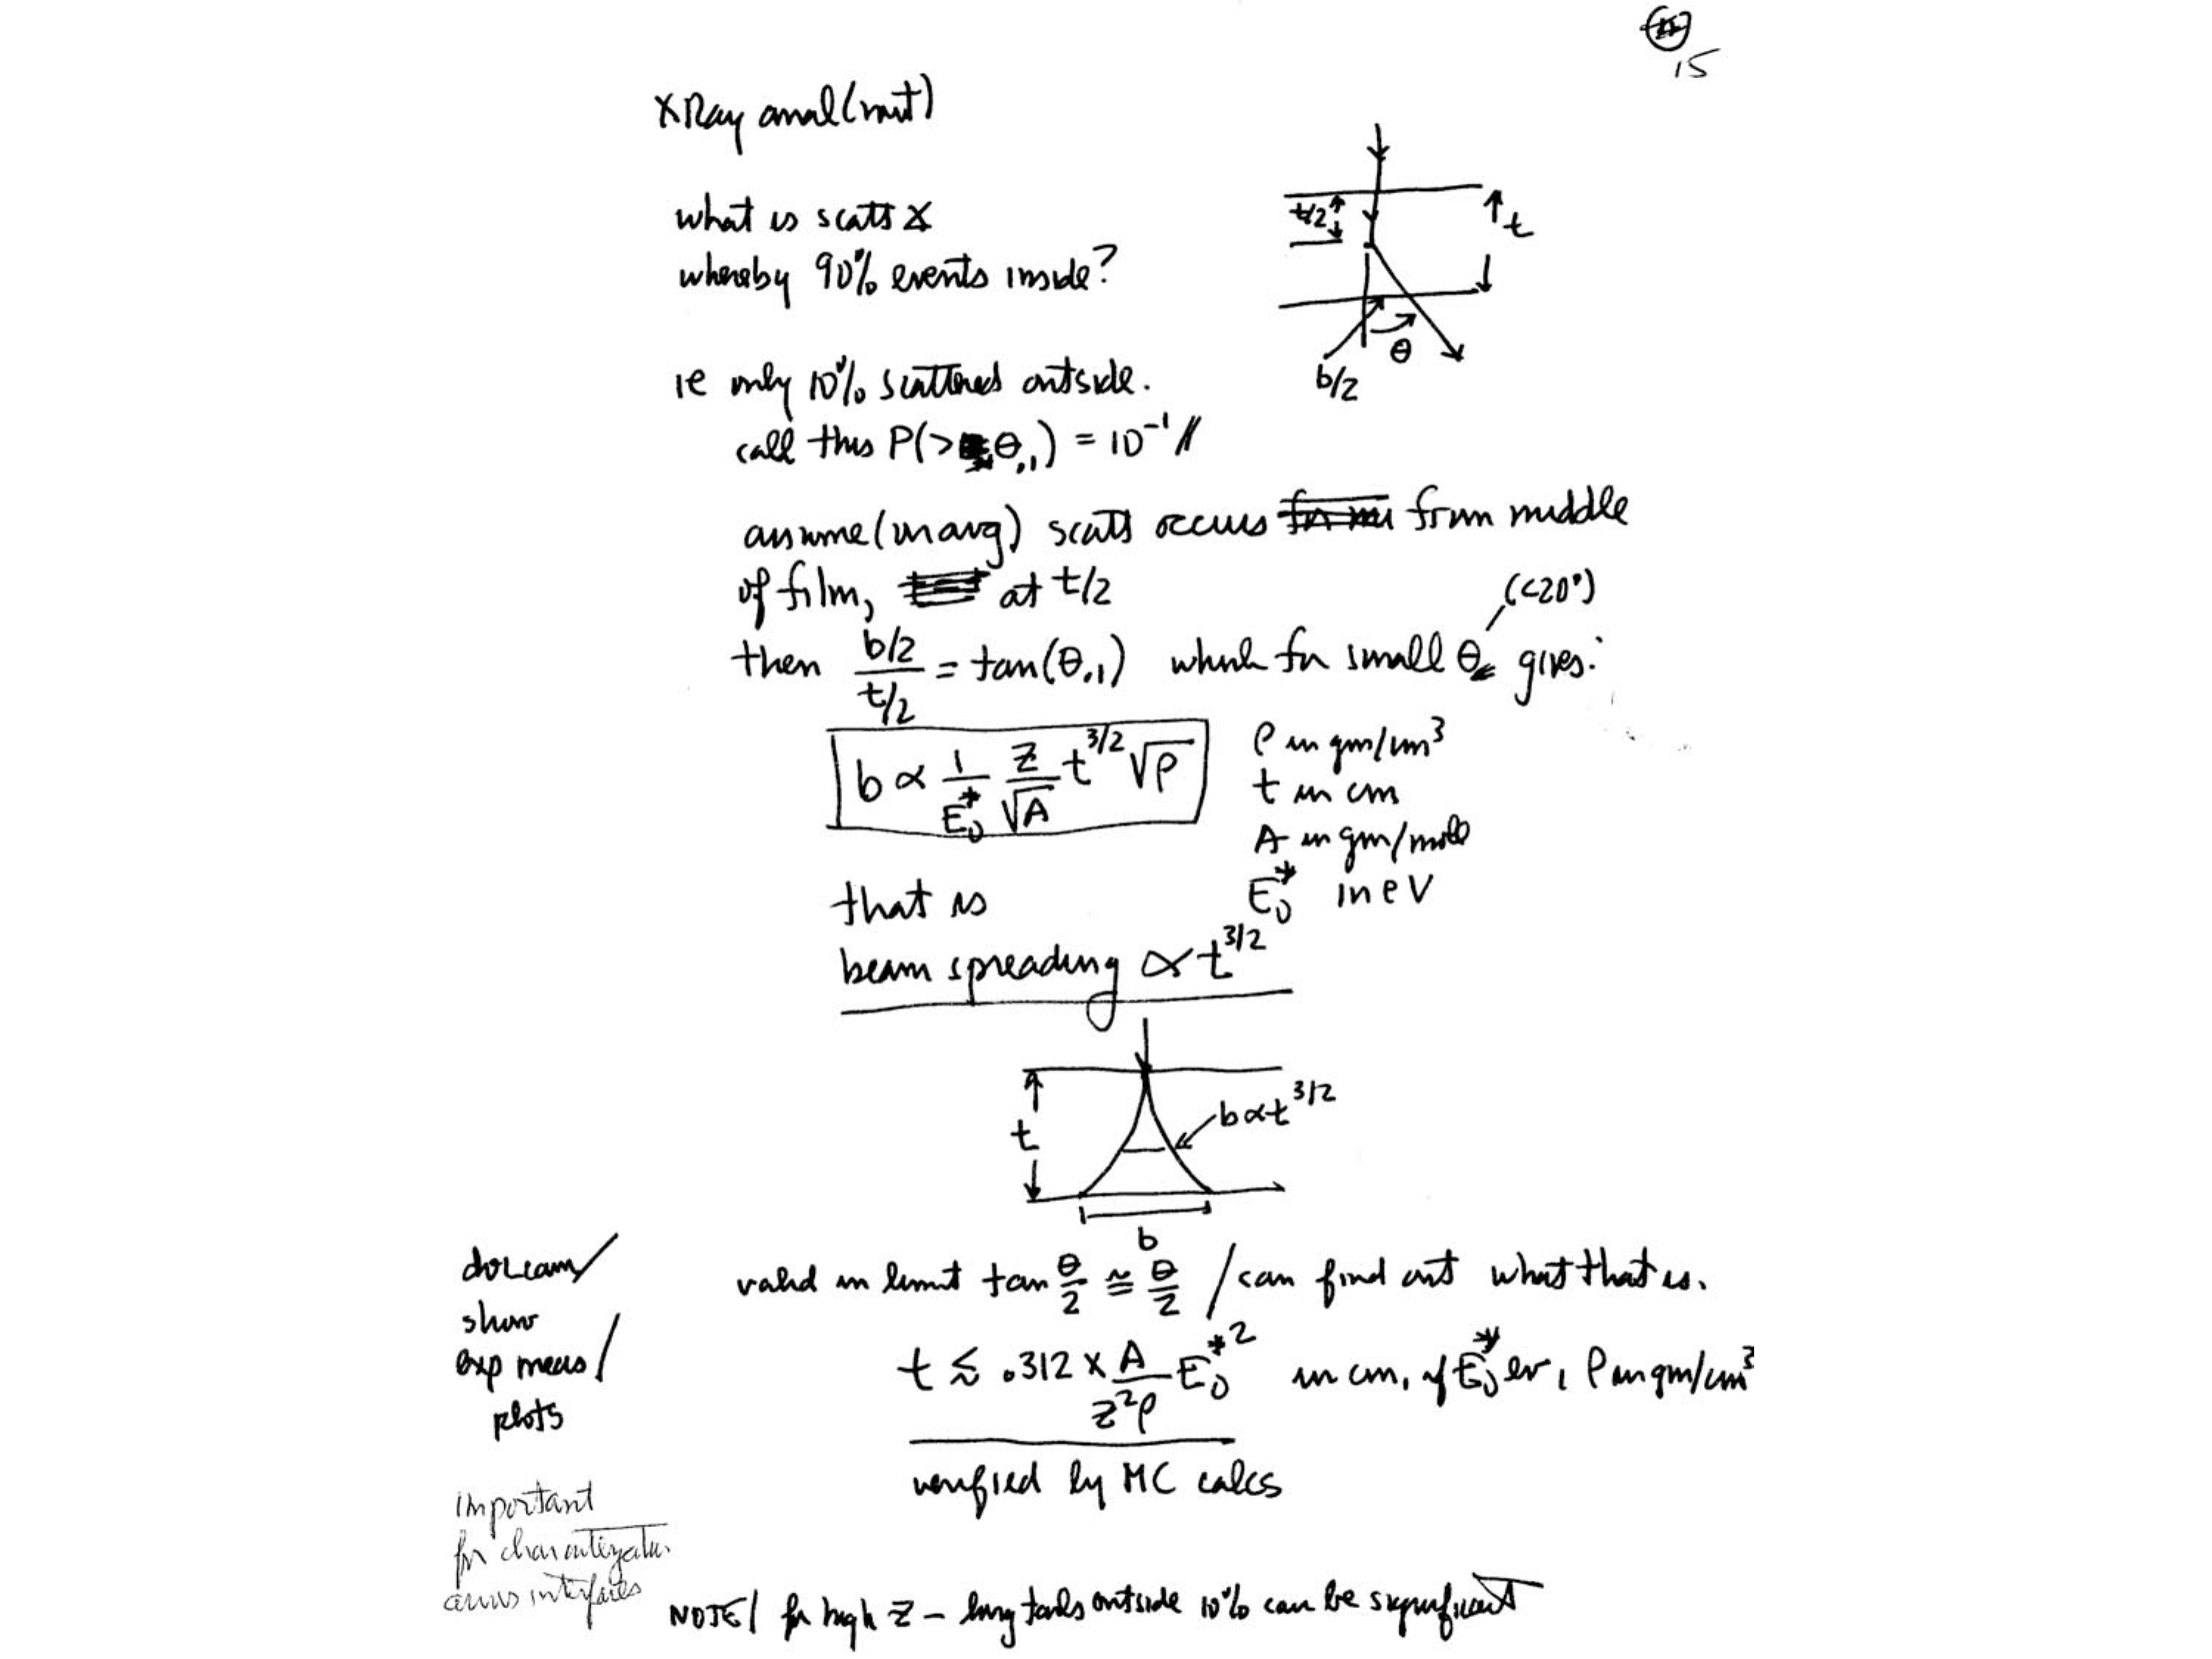 15
XRay anal (cont)
t/2
t
θ
b/2
what is scatt ∡
whereby 90% events inside?
ie only 10% scattered outside.
call this P(> θ.1) = 10⁻¹ //
assume (on avg) scatt occurs from middle
of film, at t/2
(<20°)
then (b/2)/(t/2) = tan(θ.1) which for small θ gives:
b ∝ 1/E₀* Z/√A t^3/2 √ρ
ρ in gm/cm³
t in cm
A in gm/mole
E₀* in eV
that is
beam spreading ∝ t^3/2
t
b∝t^3/2
b
valid in limit tan θ/2 ≅ θ/2 / can find out what that is.
t ≲ .312 × A/(Z²ρ) E₀*² in cm, if E₀* ev, ρ in gm/cm³
verified by MC calcs
show
exp meas /
plots
important
for
across interfaces
NOTE / for high Z – long tails outside 10% can be significant